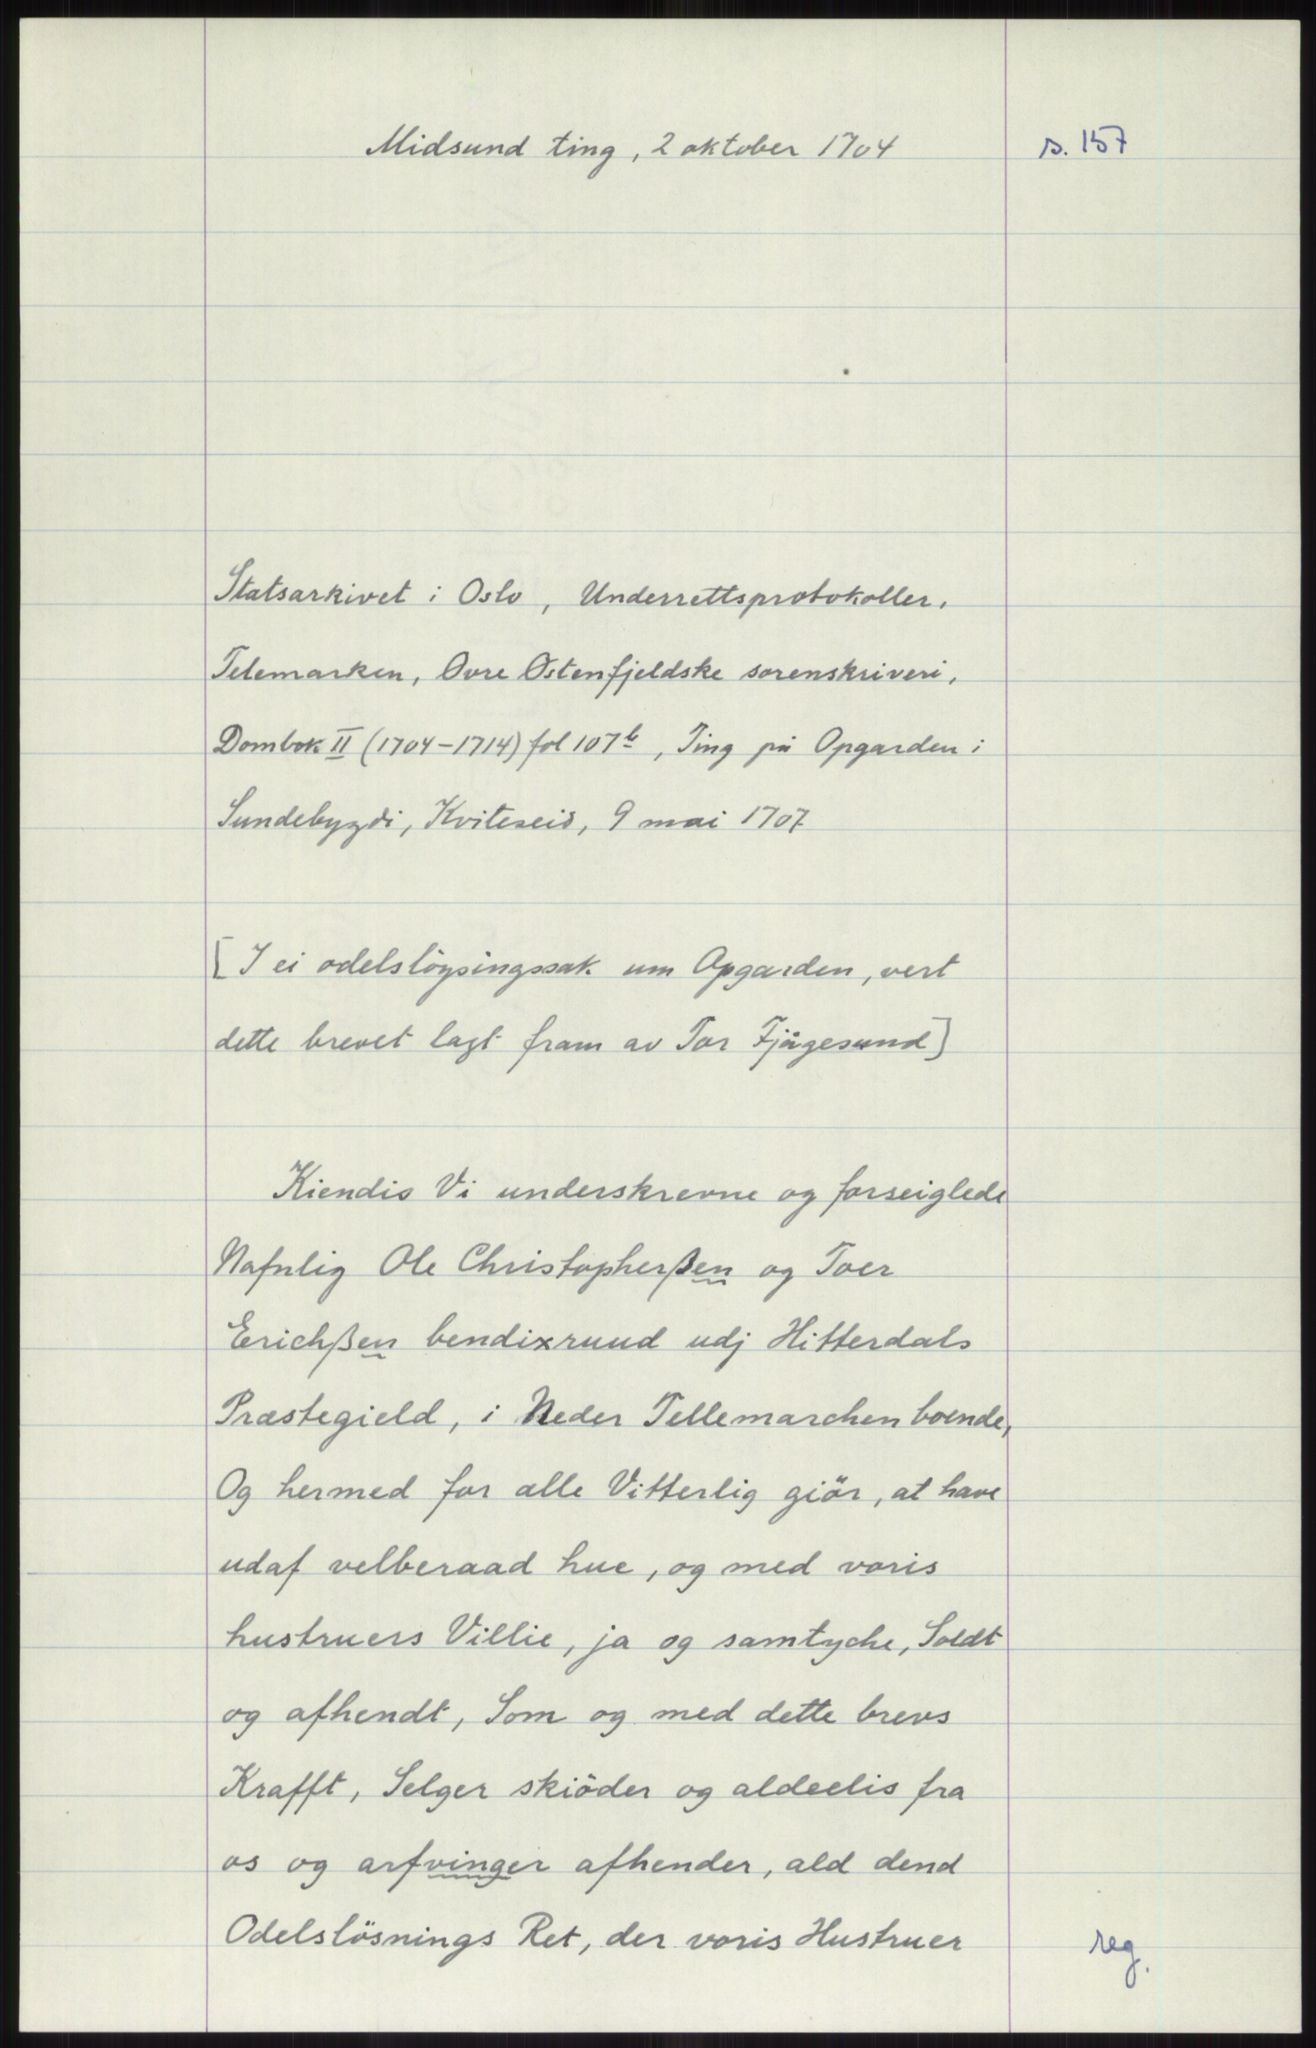 Midsund ting, 2 oktober 1704
s. 157
Statsarkivet i Oslo, Underrettsprotokoller,
Telemarken, Øvre Østenfjeldske sorenskriveri,
Dombok II (1704-1714) fol 107b, Ting på Opgarden i
Sundebygdi, Kviteseid, 9 mai 1707
[I ei odelsløysingssak um Opgarden, vert
dette brevet lagt fram av Tor Fjågesund]
Kiendis Vi underskrevne og forseiglede
Nafnlig Ole Christopherßen og Toer
Erichßen bendixruud udj Hitterdals
Præstegield, i Neder Tellemarchen boende,
Og hermed for alle Vitterlig giör, at have
udaf velberaad hue, og med voris
hustruers Villie, ja og samtyche, Soldt
og afhendt, Som og med dette brevs
Krafft, Selger skiöder og aldeelis fra
os og arfvinger afhender, ald dend
Odelslösnings Ret, der voris Hustruer
reg.